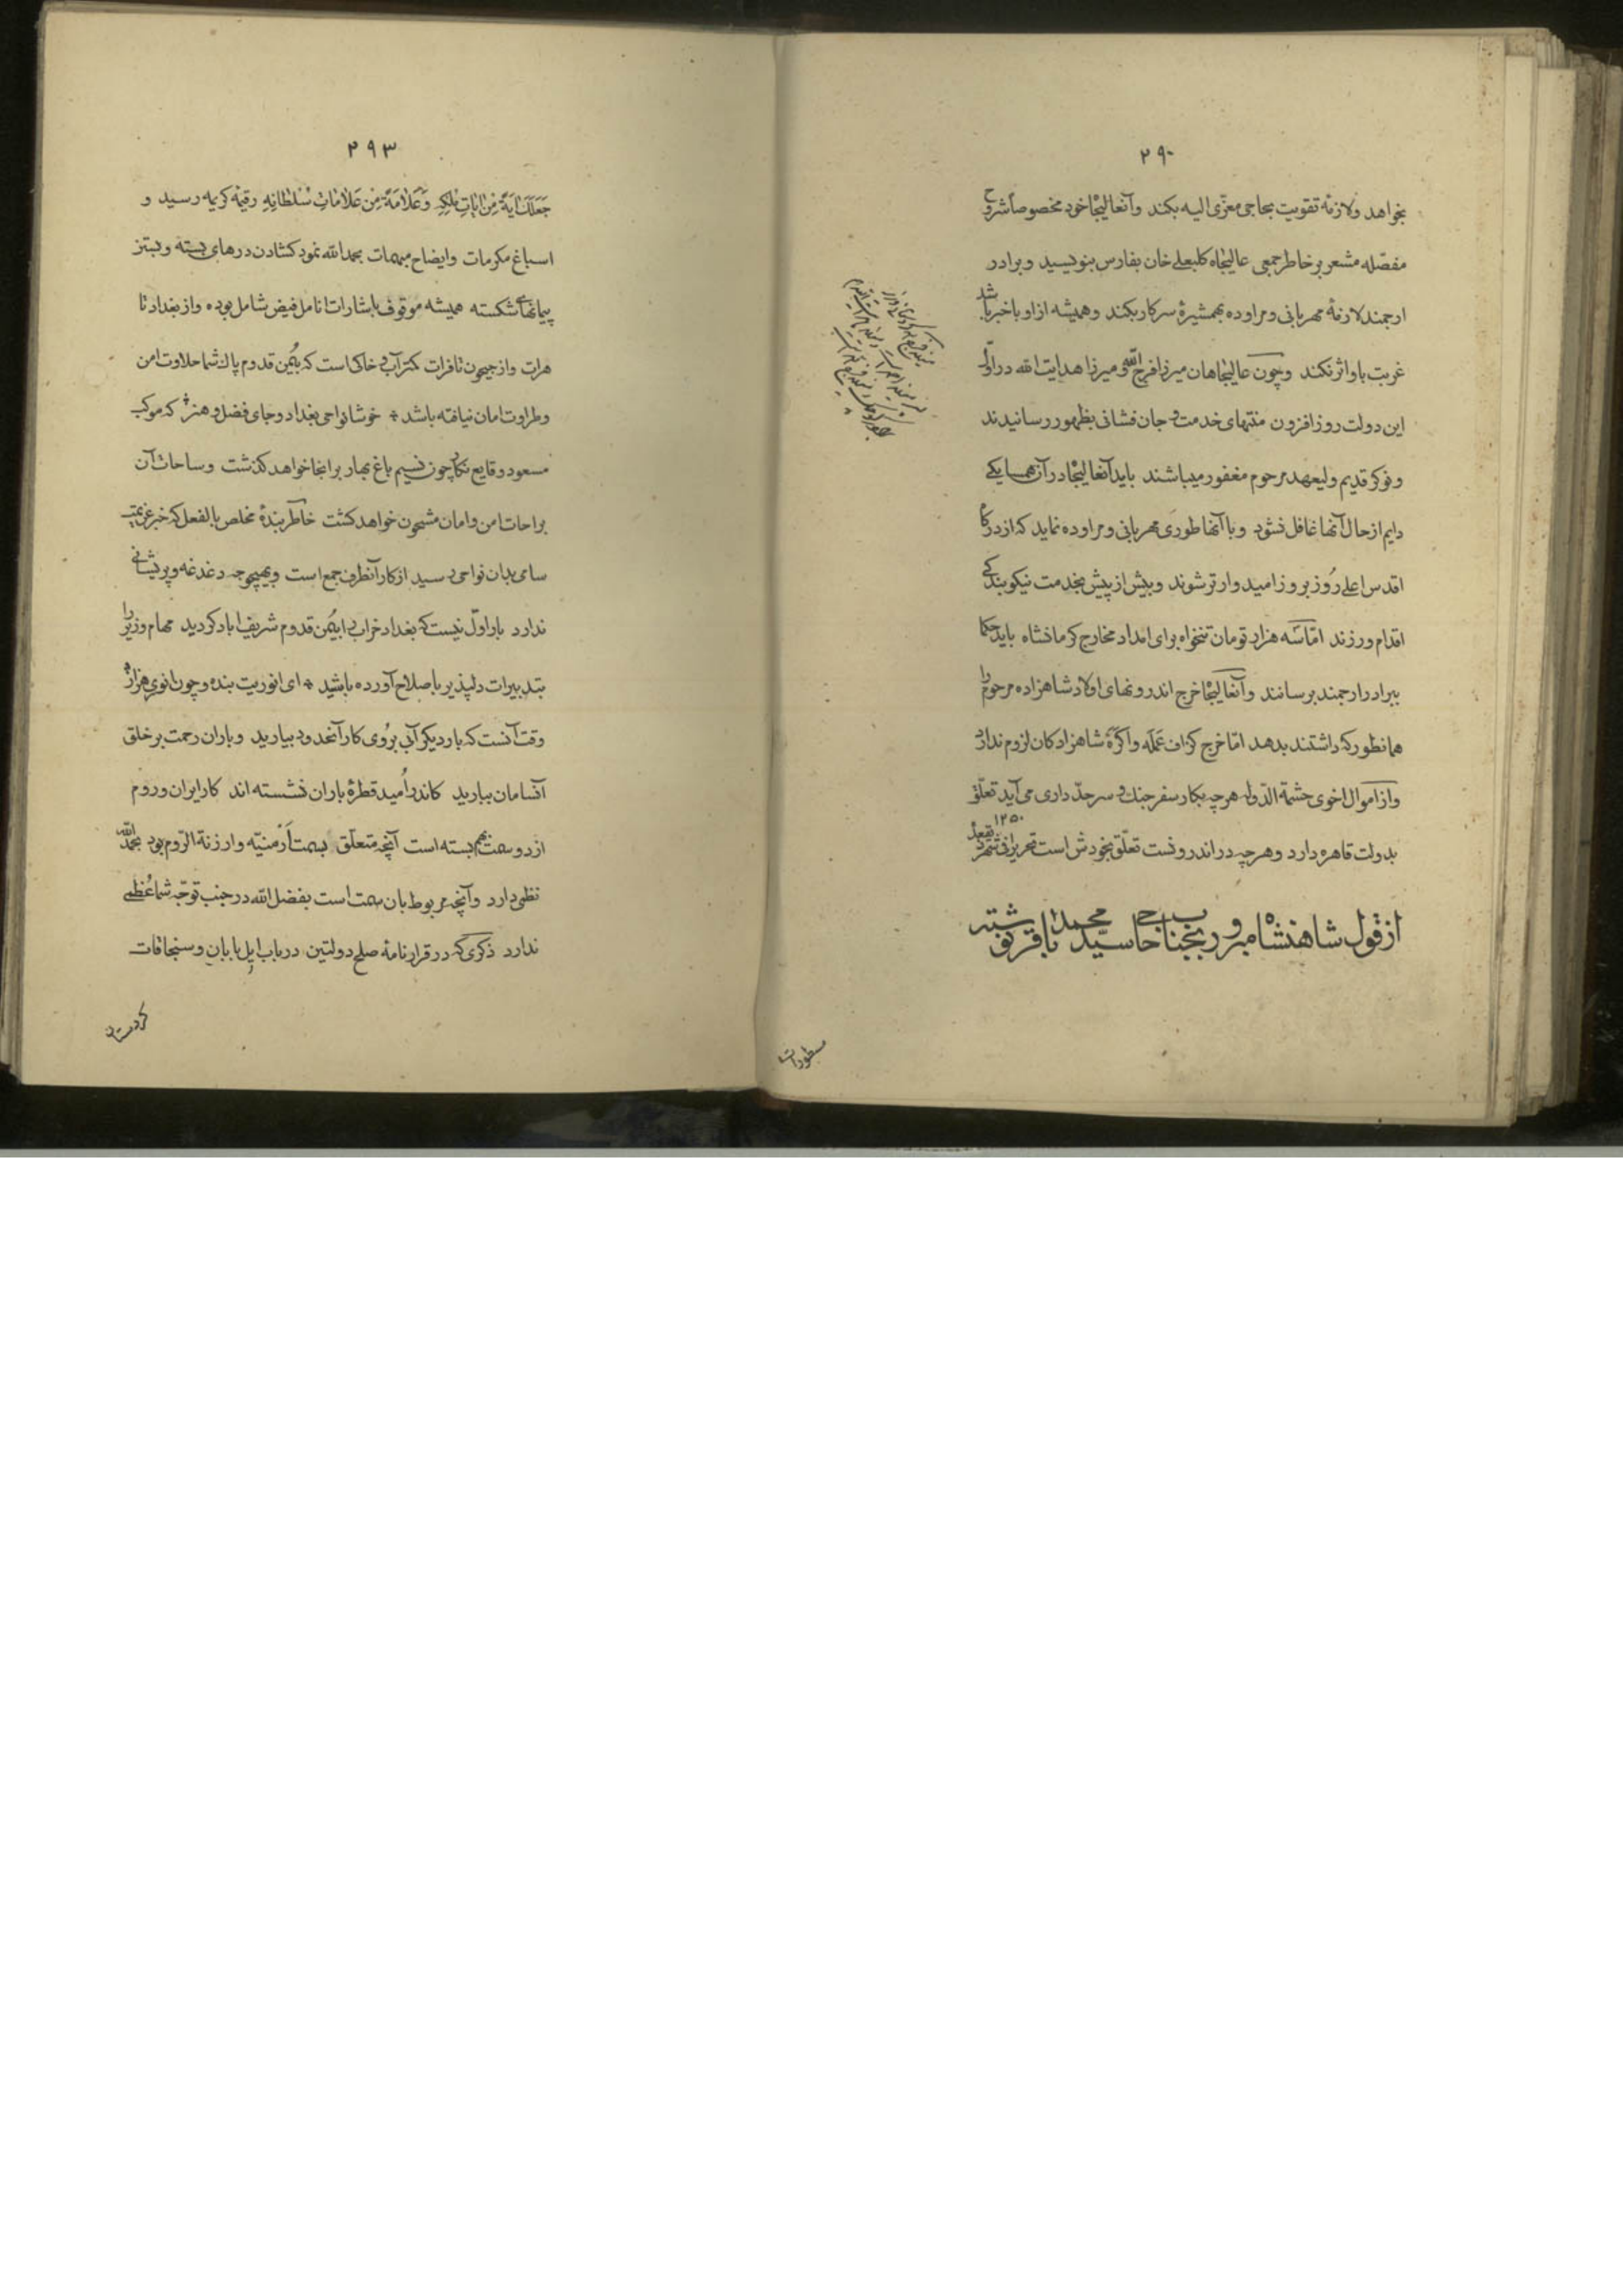 ۲۹۰
بخواهد ولازمه تقویت بحاجی معزی الیه بکند وآنعالیجاه خود مخصوصاً شروح
مفصله مشعر بر خاطر جمعی عالیجاه کلبعلی خان بفارس بنویسید و برادر
ارجمند لازمهٔ مهربانی ومراوده بهمشیرهٔ سرکار بکند وهمیشه ازاو باخبر باشد
غربت باو اثر نکند وچون عالیجاهان میرزا فرج الله میرزا هدایت الله در اول
این دولت روزافزون منتهای خدمت و جان فشانی بظهور رسانیدند
ونوکر قدیم ولیعهد مرحوم مغفور میباشند باید آنعالیجاه در آن همسایکی
دایم ازحال آنها غافل نشود وباآنها طوری مهربانی ومراوده نماید که از درگاه
اقدس اعلی روز بروز امیدوارتر شوند وبیش از پیش بخدمت نیکو بندکی
اقدام ورزند اما سه هزار تومان تنخواه برای امداد مخارج کرمانشاه باید حکما
ببرادر ارجمند برسانند وآنعالیجاه خرج اندرونهای اولاد شاهزاده مرحوم را
همانطور که داشتند بدهد اما خرج کزاف عمله واکرهٔ شاهزادکان لزوم ندارد
وازاموال اخوی حشمة الدوله هرچه بکار سفر جنک و سرحد داری می آید تعلق
بدولت قاهره دارد وهرچه در اندرونست تعلق بخودش است تحریرا فی شهر ذیقعدهٔ ۱۲۵۰
ازقول شاهنشاه مبرور بجناب حاجی سید محمد باقر رشتی
مسطورات
۲۹۳
جعلک آیة من آیات ملکه وعلامة من علامات سلطانه رقیمهٔ کریمه رسید و
اسباغ مکرمات وایضاح مبهمات بحمدالله نمود کشادن درهای بسته وبستن
پیمانهای شکسته همیشه موقوف باشارات انامل فیض شامل بوده واز بغداد تا
هرات واز جیحون تا فرات کمتر آب و خاکی است که بیمن قدوم پاک شما حلاوت امن
وطراوت امان نیافته باشد * خوشا نواحی بغداد وجای فضل وهنر * که موکب
مسعود وقایع نکار چون نسیم باغ بهار برانجا خواهد کذشت وساحات آن
براحات امن وامان مشحون خواهد کشت خاطر بندهٔ مخلص بالفعل که خبر عزیمت
سامی بدان نواحی رسید از کار آنطرف جمع است وبهیچوجه دغدغه وپریشانی
ندارد بار اول نیست که بغداد خراب را بیمن قدوم شریف اباد کردید مهام وزیر را
بتدبیرات دلپذیر باصلاح آورده باشید * ای انوریت بنده وچون انوری هزار *
وقت آنست که بار دیکر آبی بروی کار آنحدود بیارید وباران رحمت بر خلق
آنسامان ببارید کاندر امید قطرهٔ باران نشسته اند کار ایران وروم
از دو سمت بهم بسته است آنچه متعلق بسمت ارمنیه وارزنة الروم بود بحمدالله
نظمی دارد وآنچه مربوط بان سمت است بفضل الله در جنب توجه شما عظمی
ندارد ذکری که در قرارنامهٔ صلح دولتین درباب ایل بابان وسنجاقات
کردستان